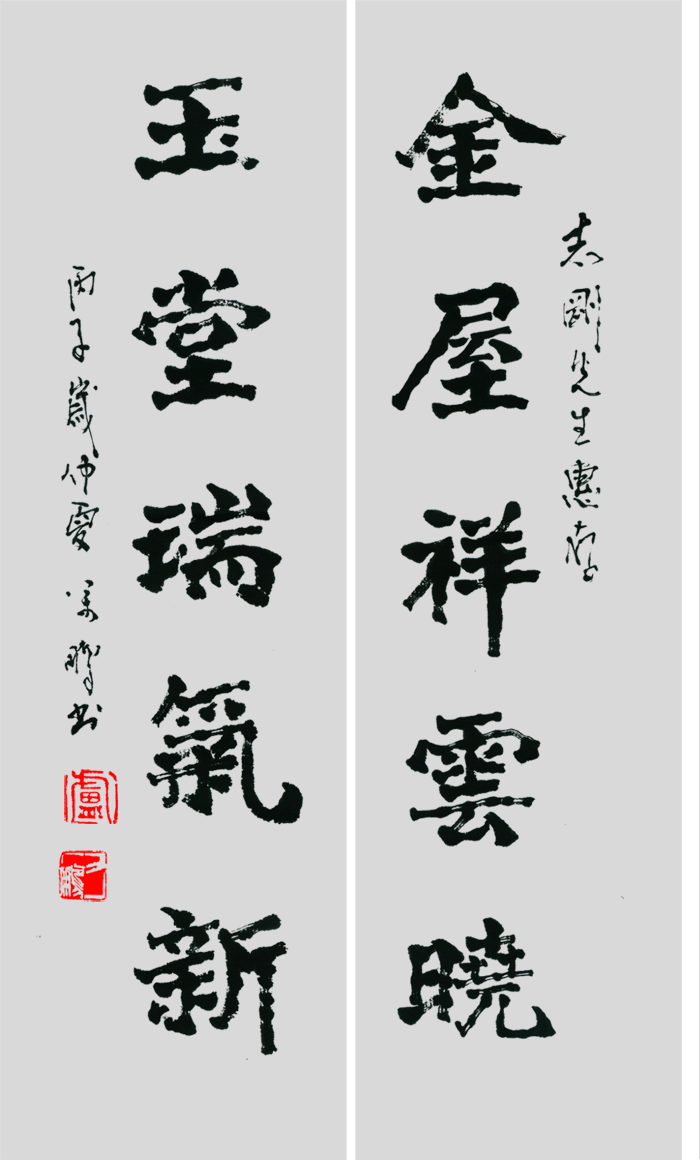 志剛先生惠存
金屋祥雲曉
玉堂瑞氣新
丙子歲仲夏
書
盧